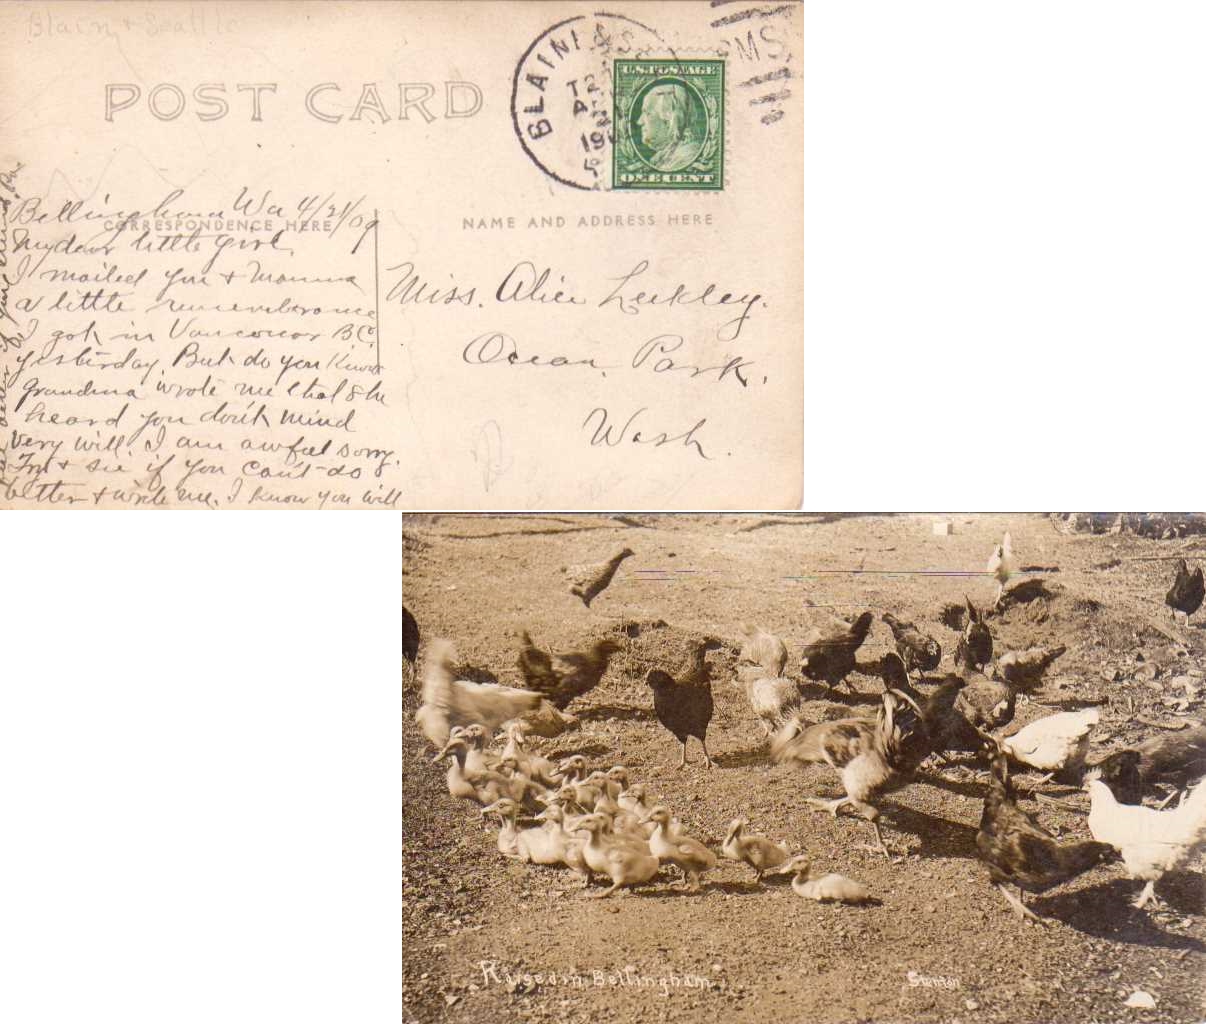 Blain & Seattle
POST CARD
BLAINE & S
T 21
AP
19
RMS
U.S. POSTAGE
ONE CENT
CORRESPONDENCE HERE
NAME AND ADDRESS HERE
Bellingham Wa 4/21/09
My dear little girl.
I mailed you & Mamma
a little rememberance
I got in Vancouver BC
yesterday. But do you know
Grandma wrote me that she
heard you don't mind
very well. I am awful sorry.
Try & see if you can't do
better & write me. I know you will
Miss. Alice Leckley.
Ocean Park.
Wash.
Raised in Bellingham
Stanton